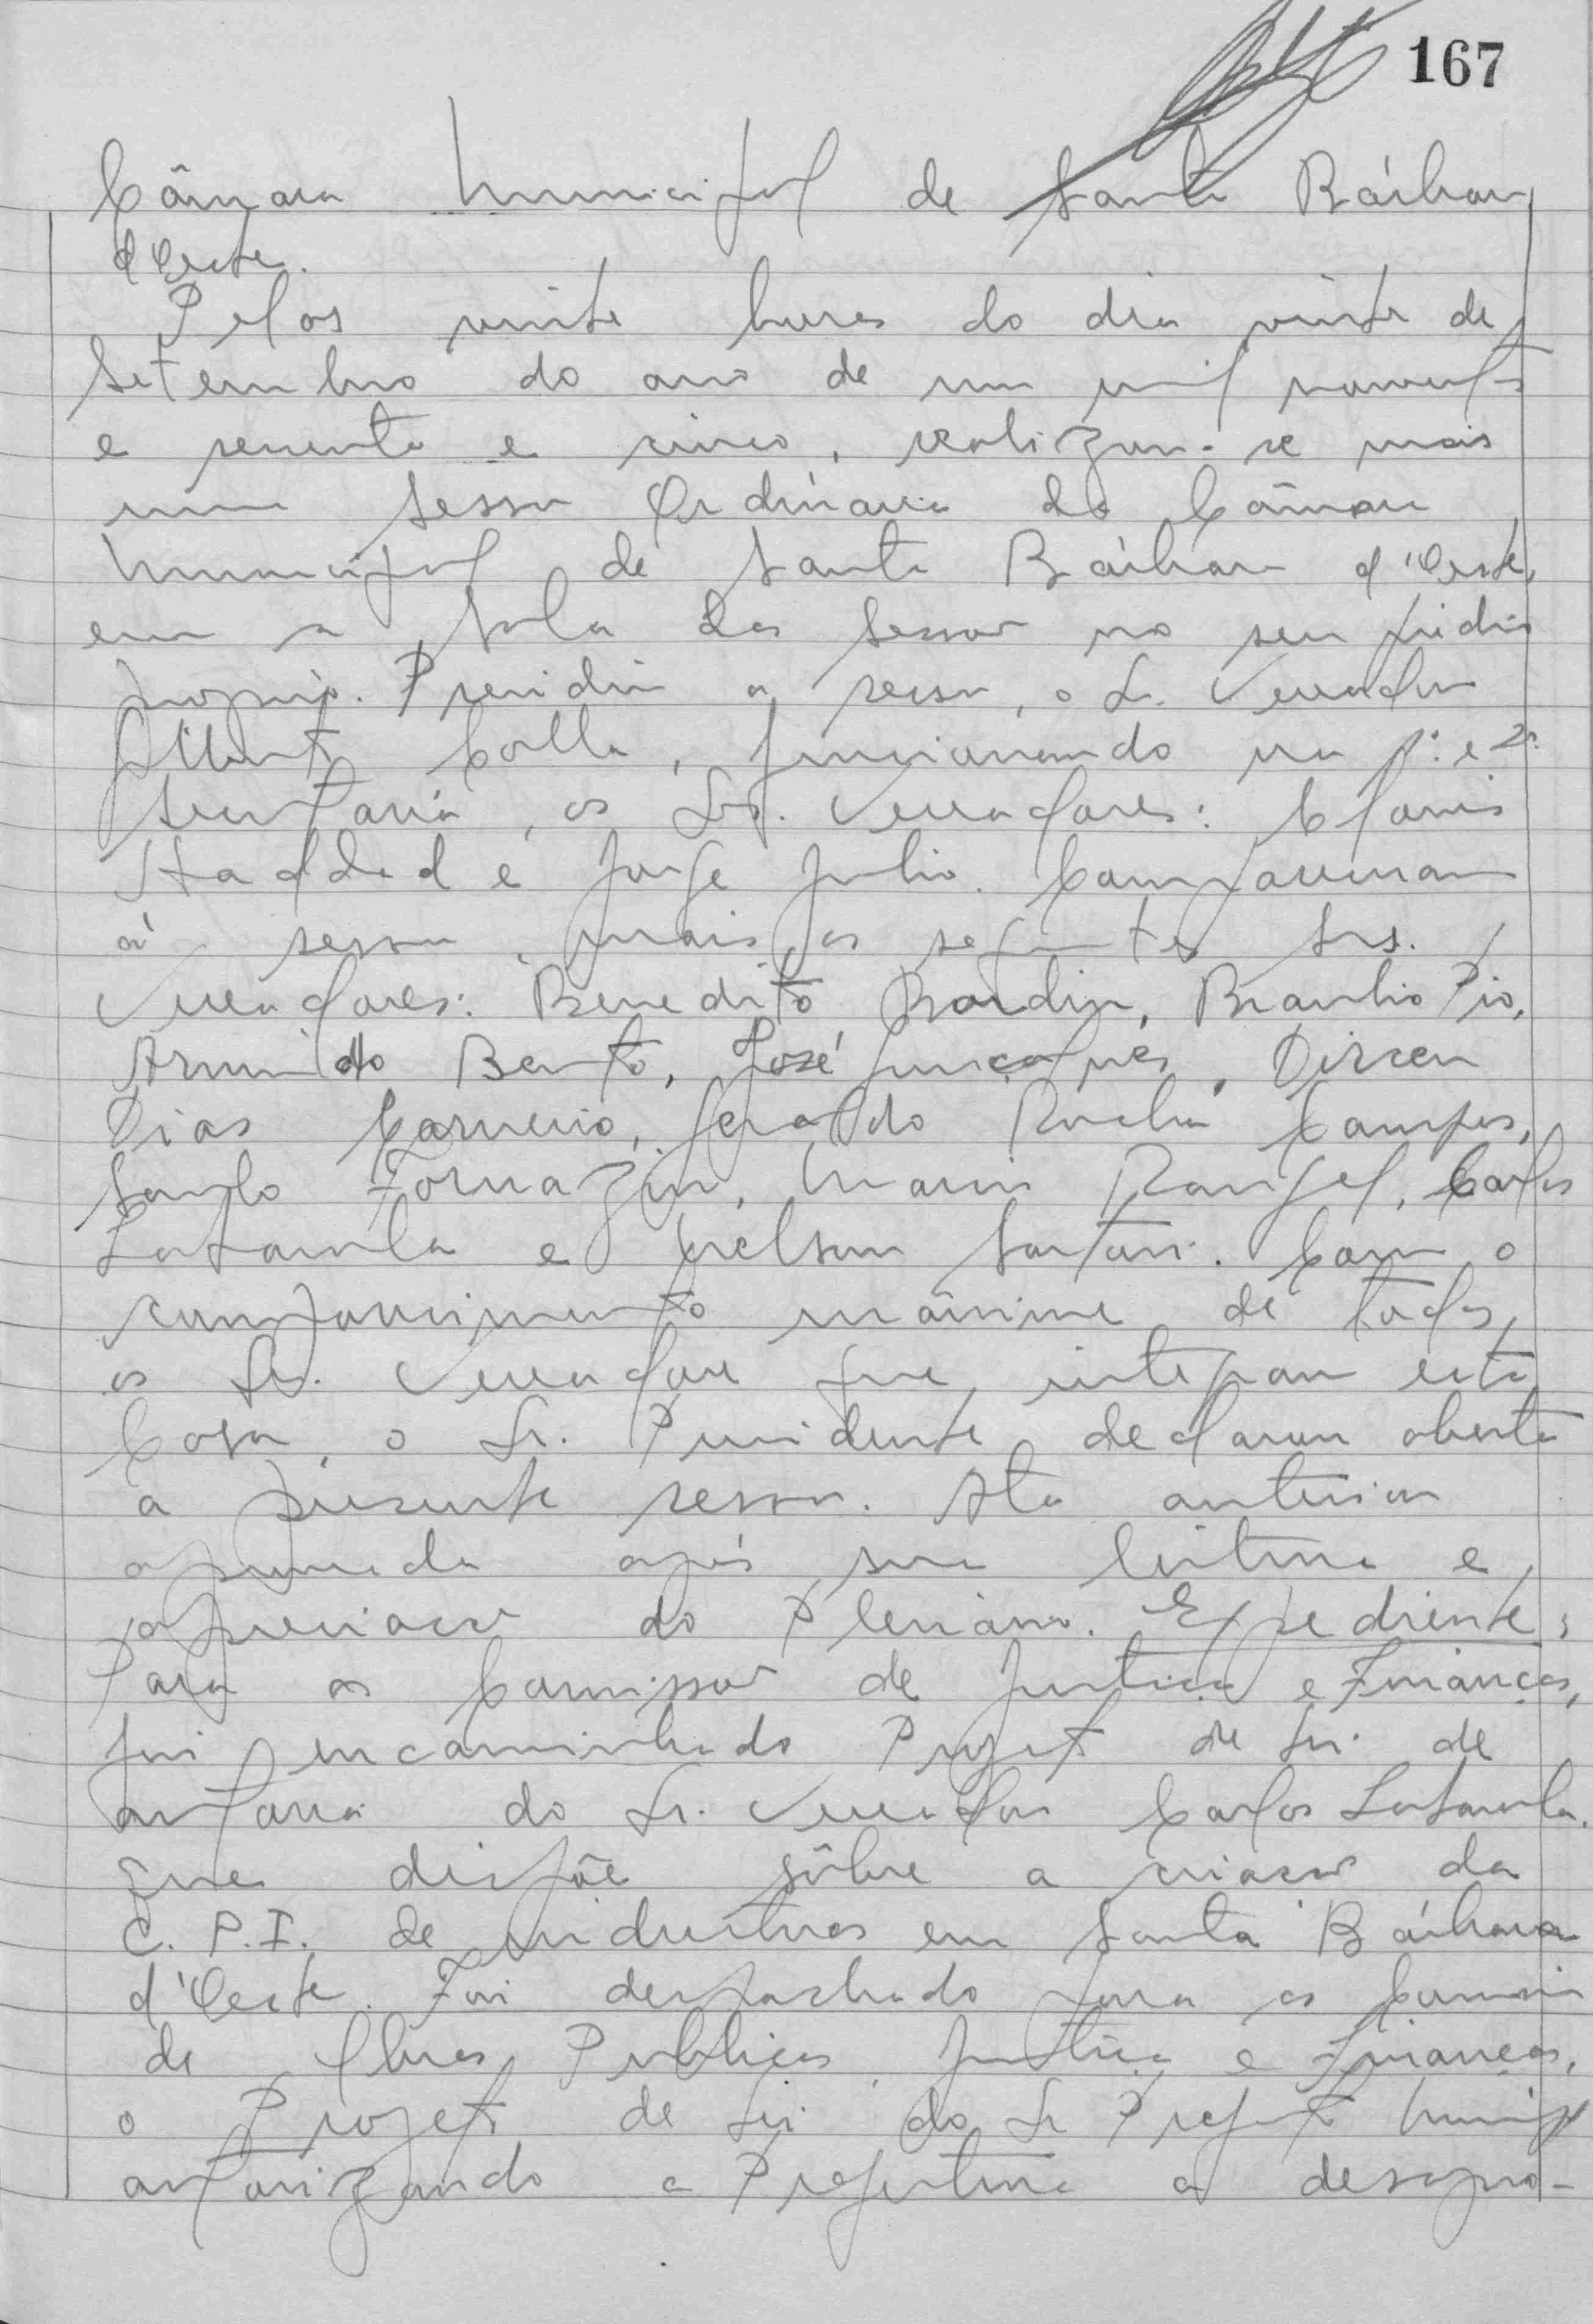 167
Câmara Municipal de Santa Bárbara
d'Oeste.
Pelas vinte horas do dia vinte de
Setembro do ano de um mil novecentos
e sessenta e cinco, realizou-se mais
uma Sessão Ordinária da Câmara
Municipal de Santa Bárbara d'Oeste,
em a Sala das Sessões no seu prédio
proprio. Presidiu a sessão, o Sr. Vereador
Alberto Colla, funcionando na 1ª e 2ª
Secretaria, os Srs. Vereadores: Clovis
Haddad e Jorge Julio. Compareceram
à sessão, mais os seguintes Srs.
Vereadores: Benedito Bordin, Braulio Pio,
Armindo Bento, José Gonçalves, Dirceu
Dias Carneiro, Geraldo Rocha Campos,
Santo Fornazin, Mario Rangel, Carlos
Lastarola e Nelson Sartori. Com o
comparecimento unânime de todos
os Srs. Vereadores que integram esta
Casa, o Sr. Presidente declarou aberta
a presente sessão. Ata anterior
aprovada após sua leitura e
apreciação do Plenário. Expediente:
Para as Comissões de Justiça e Finanças,
foi encaminhado Projeto de Lei de
autoria do Sr. Vereador Carlos Lastarola.
que dispõe sôbre a criação da
C. P. I. de industrias em Santa Bárbara
d'Oeste. Foi despachado para as Comissões
de Obras Publicas, Justiça e Finanças,
o Projeto de Lei do Sr Prefeito Municipal
autorizando a Prefeitura a desapro-